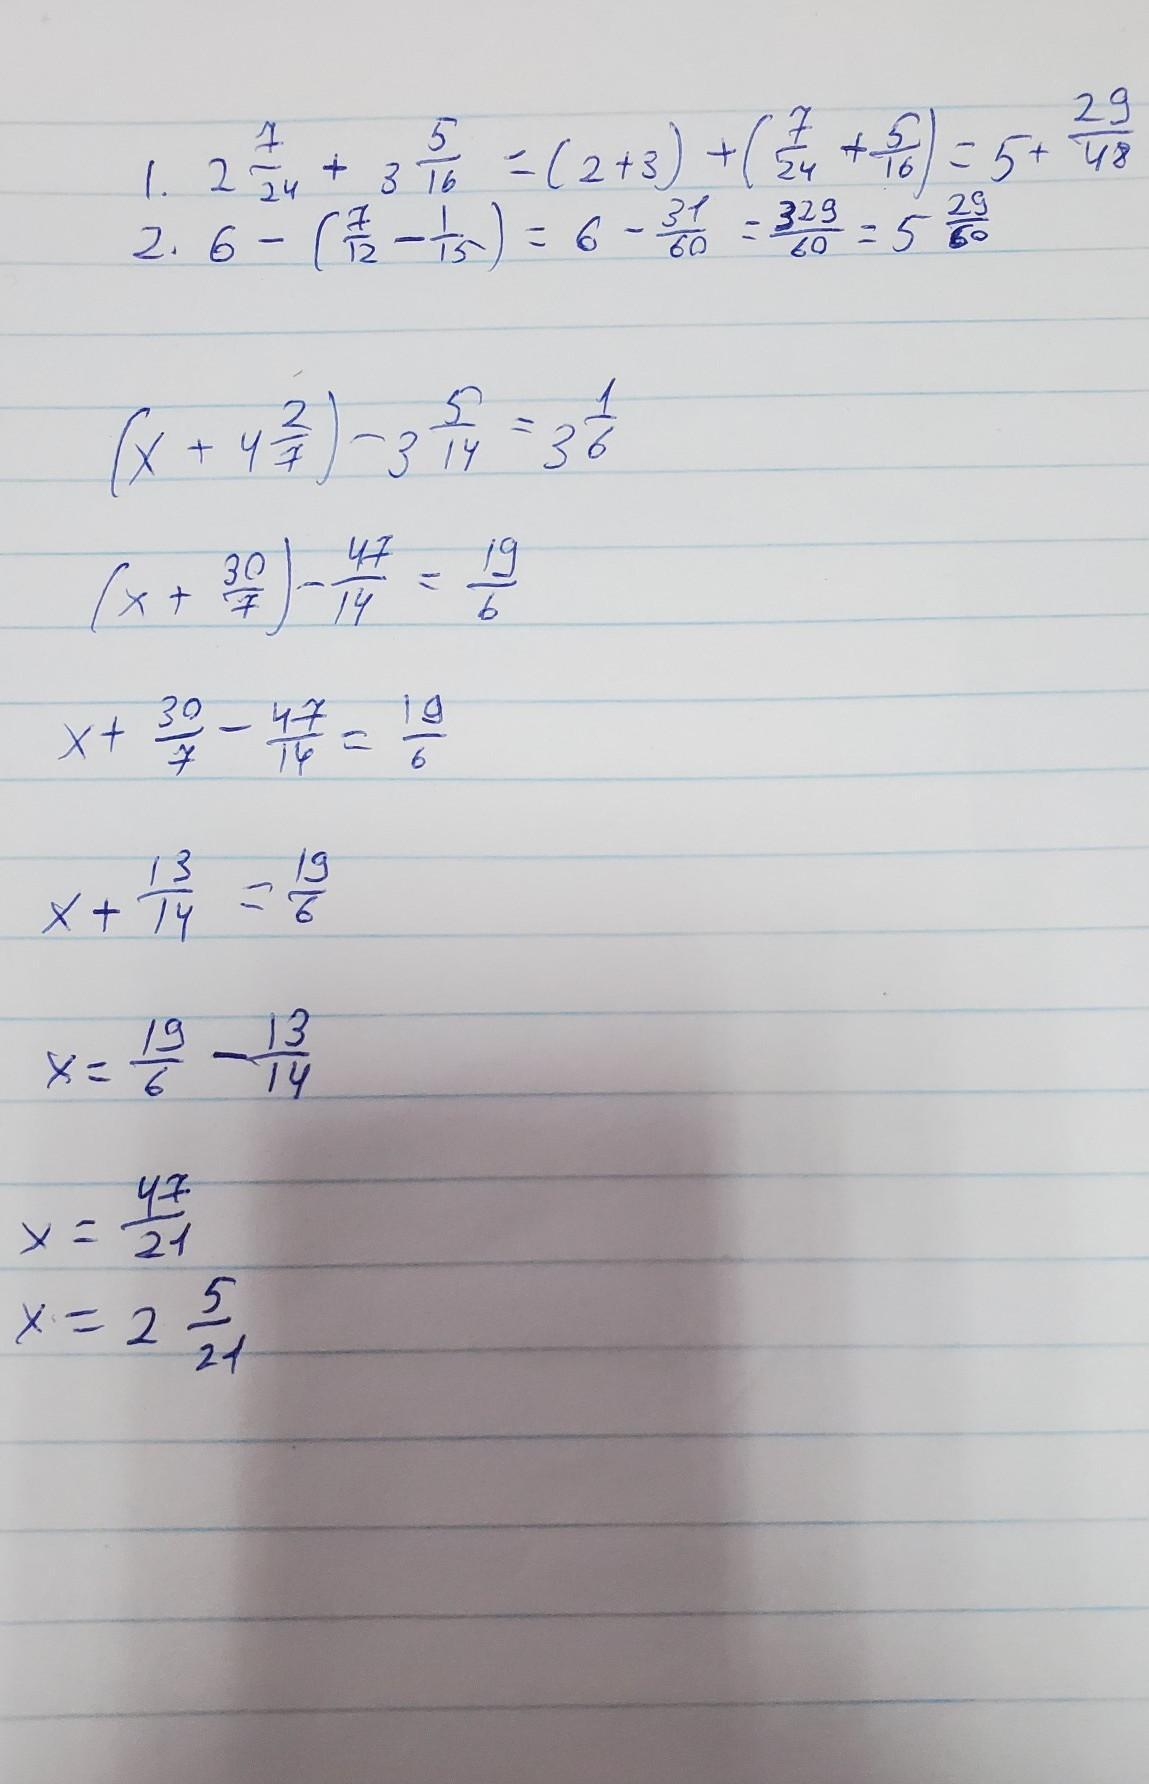 1. 2 7/24 + 3 5/16 = (2+3) + (7/24 + 5/16) = 5 + 29/48
2. 6 - (7/12 - 1/15) = 6 - 31/60 = 329/60 = 5 29/60
(x + 4 2/7) - 3 5/14 = 3 1/6
(x + 30/7) - 47/14 = 19/6
x + 30/7 - 47/14 = 19/6
x + 13/14 = 19/6
x = 19/6 - 13/14
x = 47/21
x = 2 5/21